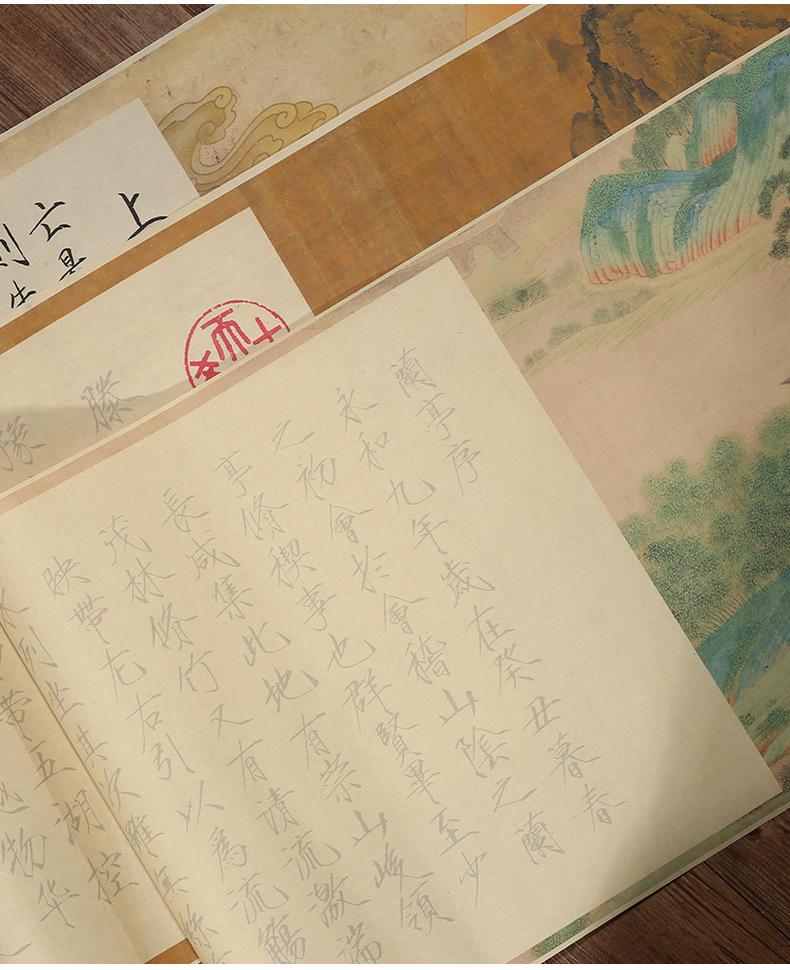 上
滕
豫
蘭亭序
永和九年歲在癸丑暮春
之初會於會稽山陰之蘭
亭脩禊事也群賢畢至少
長咸集此地有崇山峻領
茂林脩竹又有清流激湍
映帶左右引以為流觴
水列坐其次雖無絲
帶五湖控
物华